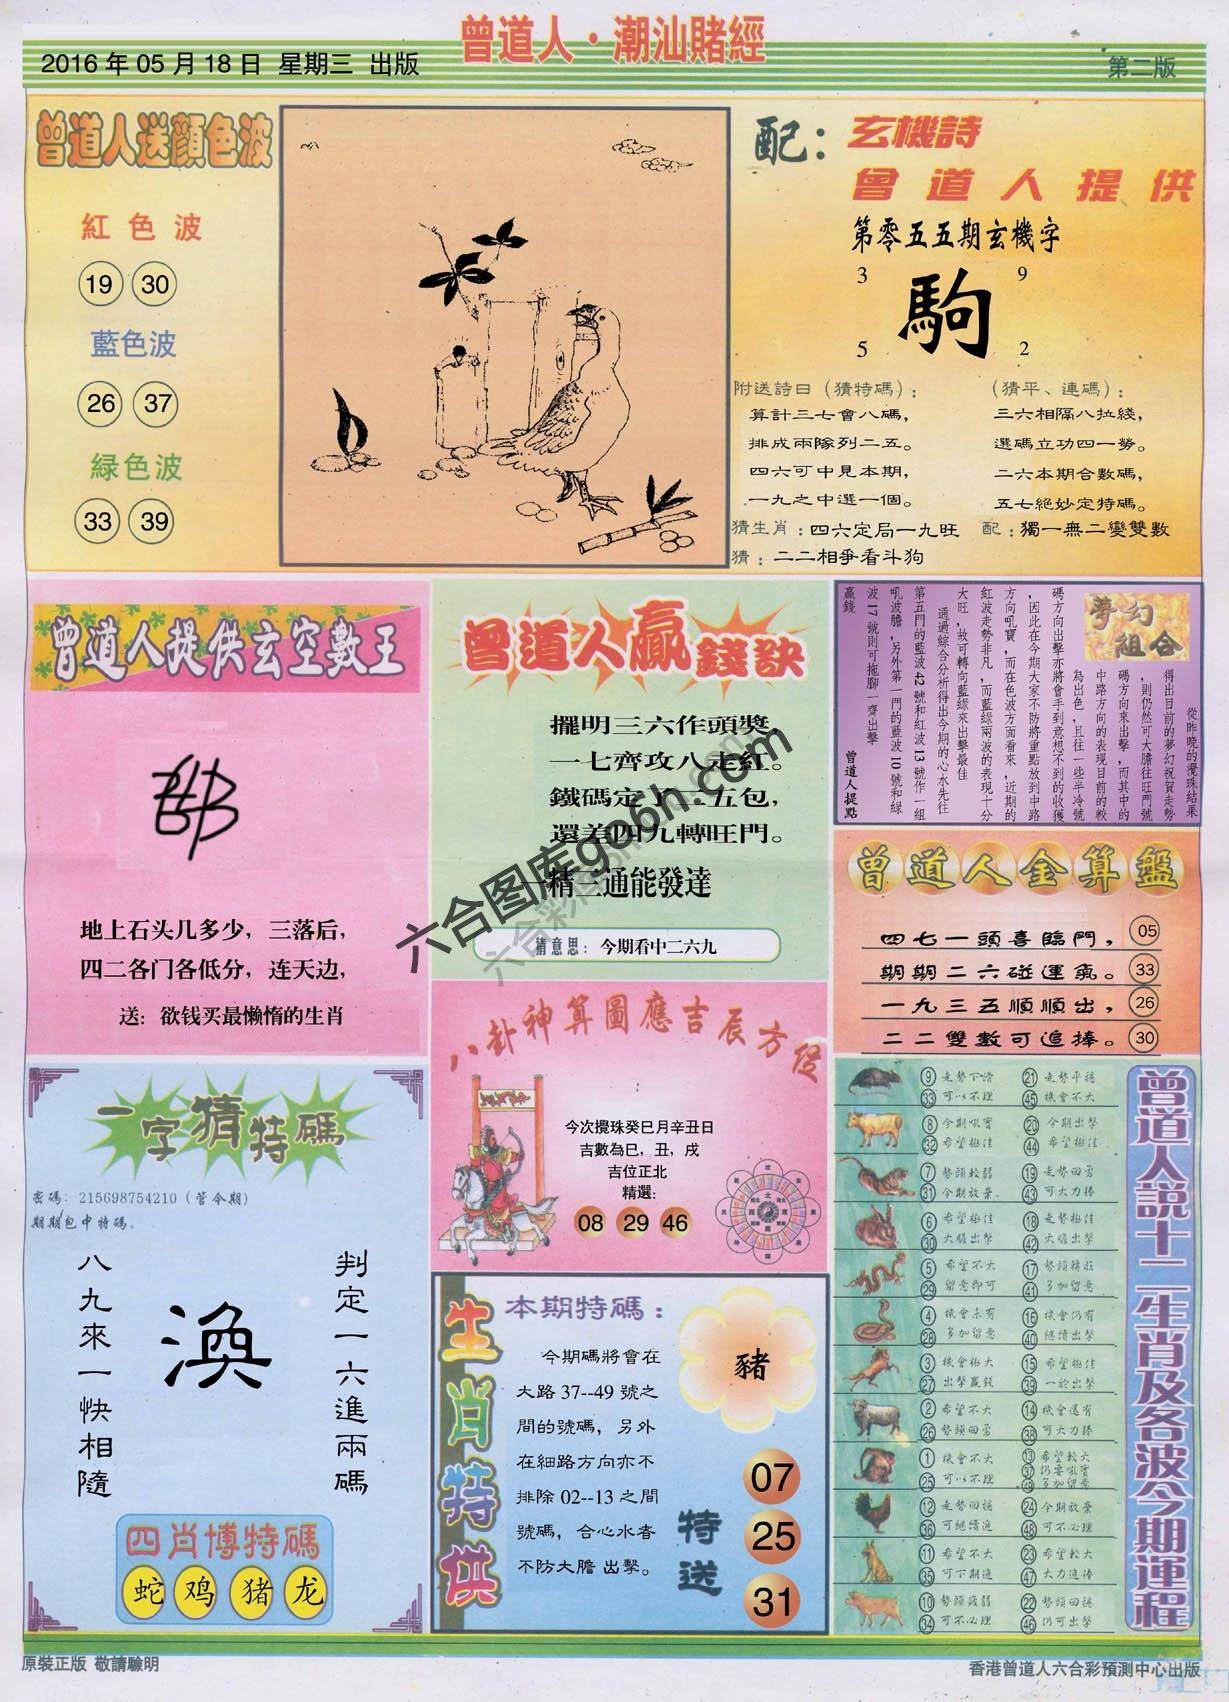 曾道人·潮汕賭經
2016年05月18日 星期三 出版
第二版
曾道人送顔色波
紅色波
19 30
藍色波
26 37
緑色波
33 39
配：玄機詩
曾道人提供
第零五五期玄機字
3 9
駒
5 2
附送詩曰（猜特碼）：
算計三七會八碼，
排成兩隊列二五。
四六可中見本期，
一九之中選一個。
（猜平、連碼）：
三六相隔八拉綫，
選碼立功四一勞。
二六本期合數碼，
五七絕妙定特碼。
猜生肖：四六定局一九旺 配：獨一無二變雙數
猜：二二相爭看斗狗
曾道人提供玄空數王
地上石头几多少，三落后，
四二各门各低分，连天边，
送：欲钱买最懒惰的生肖
曾道人贏錢訣
擺明三六作頭獎，
一七齊攻八走紅。
鐵碼定了二五包，
還差四九轉旺門。
一精三通能發達
猜意思： 今期看中二六九
六合图库go6h.com
夢幻組合
從昨晚的攪珠結果
得出目前的夢幻祝賀走勢
，則仍然可大膽往旺門號
碼方向來出擊，而其中的
中路方向的表現目前的較
為出色，且往一些半冷號
碼方向出擊亦將會手到意想不到的收獲
，因此在今期大家不防將重點放到中路
方向吼寶，而在色波方面看來，近期的
紅波走勢非凡，而藍綠兩波的表現十分
大旺，故可轉向藍綠來出擊最佳
通過綜合分析得出今期的心水先往
第五門的藍波42號和紅波13號作一組
吼波膽，另外第一門的藍波10號和綠
波17號則可拖腳一齊出擊
贏錢
曾道人提點
曾道人金算盤
四七一頭喜臨門， 05
期期二六碰運氣。 33
一九三五順順出， 26
二二雙數可追捧。 30
八卦神算圖應吉辰方位
今次攪珠癸巳月辛丑日
吉數為巳，丑，戌
吉位正北
精選：
08 29 46
一字猜特碼
密碼：215698754210（管令期）
期期包中特碼。
判定一六進兩碼
渙
八九來一快相隨
四肖博特碼
蛇 鸡 猪 龙
生肖特供
本期特碼：
今期碼將會在
大路37--49號之
間的號碼，另外
在細路方向亦不
排除02--13之間
號碼，合心水者
不防大膽出擊。
豬
特送
07
25
31
曾道人説十二生肖及各波今期運程
9 走勢下滑 21 走勢平穩
33 可以不理 45 機會不大
8 今期吼寶 20 今期出擊
32 希望極佳 44 希望極佳
7 勢頭較弱 19 走勢回勇
31 今期放棄 43 可大力捧
6 希望極佳 18 走勢極佳
30 大膽出擊 42 大膽出擊
5 希望不大 17 勢頭轉旺
29 留意即可 41 多加留意
4 機會未有 16 機會仍有
28 多加留意 40 繼續出擊
3 機會極大 15 希望極佳
27 出擊贏錢 39 一於出擊
2 希望不大 14 機會還有
26 勢頭回勇 38 可大力捧
1 機會不大 13 希望較大
25 可以不理 37 仍要吼實
49 多加留意
12 走勢回穩 24 今期放棄
36 可繼續追 48 可不必理
11 希望不大 23 希望較大
35 可下期追 47 大力追捧
10 勢頭疲弱 22 勢頭回穩
34 可不必理 46 仍可出擊
原裝正版 敬請驗明
香港曾道人六合彩預測中心出版